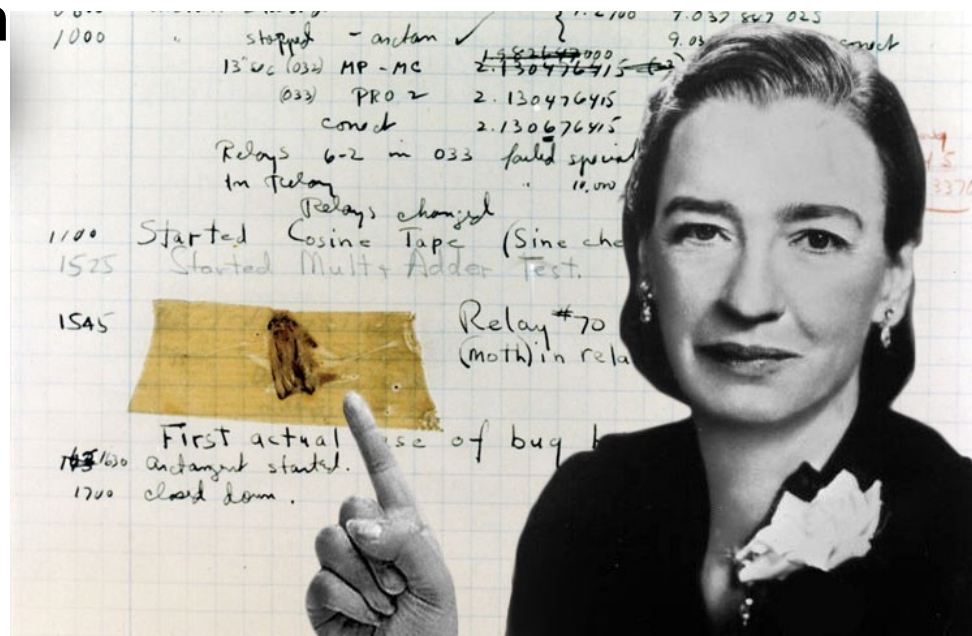 1.2700 9.037 847 025
1000 " stopped - arctan ✓
13" uc (032) MP - MC 1.982647000
2.130476415
(033) PRO 2 2.130476415
conect 2.130676415
Relays 6-2 in 033 failed special
In Relay " 10.000
Relays changed
1100 Started Cosine Tape (Sine che
1525 Started Mult + Adder Test.
1545 Relay #70
(moth) in rela
First actual se of bug b
1630 arctangent started.
1700 closed down.